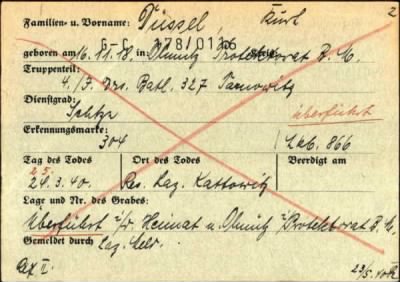 2
Familien- u. Vorname: Düssel Kurt
G-C 78/0116
geboren am 16.11.18. in Olmütz Protektorat B. M.
Truppenteil:
4./J. Ers. Batl. 327 Tarnowitz
Dienstgrad:
Schtz. überführt
Erkennungsmarke:
304 866
Tag des Todes Ort des Todes Beerdigt am
25.
24.3.40. Res. Laz. Kattowitz
Lage und Nr. des Grabes:
Überführt i/d. Heimat n. Olmütz Protektorat B. M.
Gemeldet durch Laz. Meld.
23/5. 40